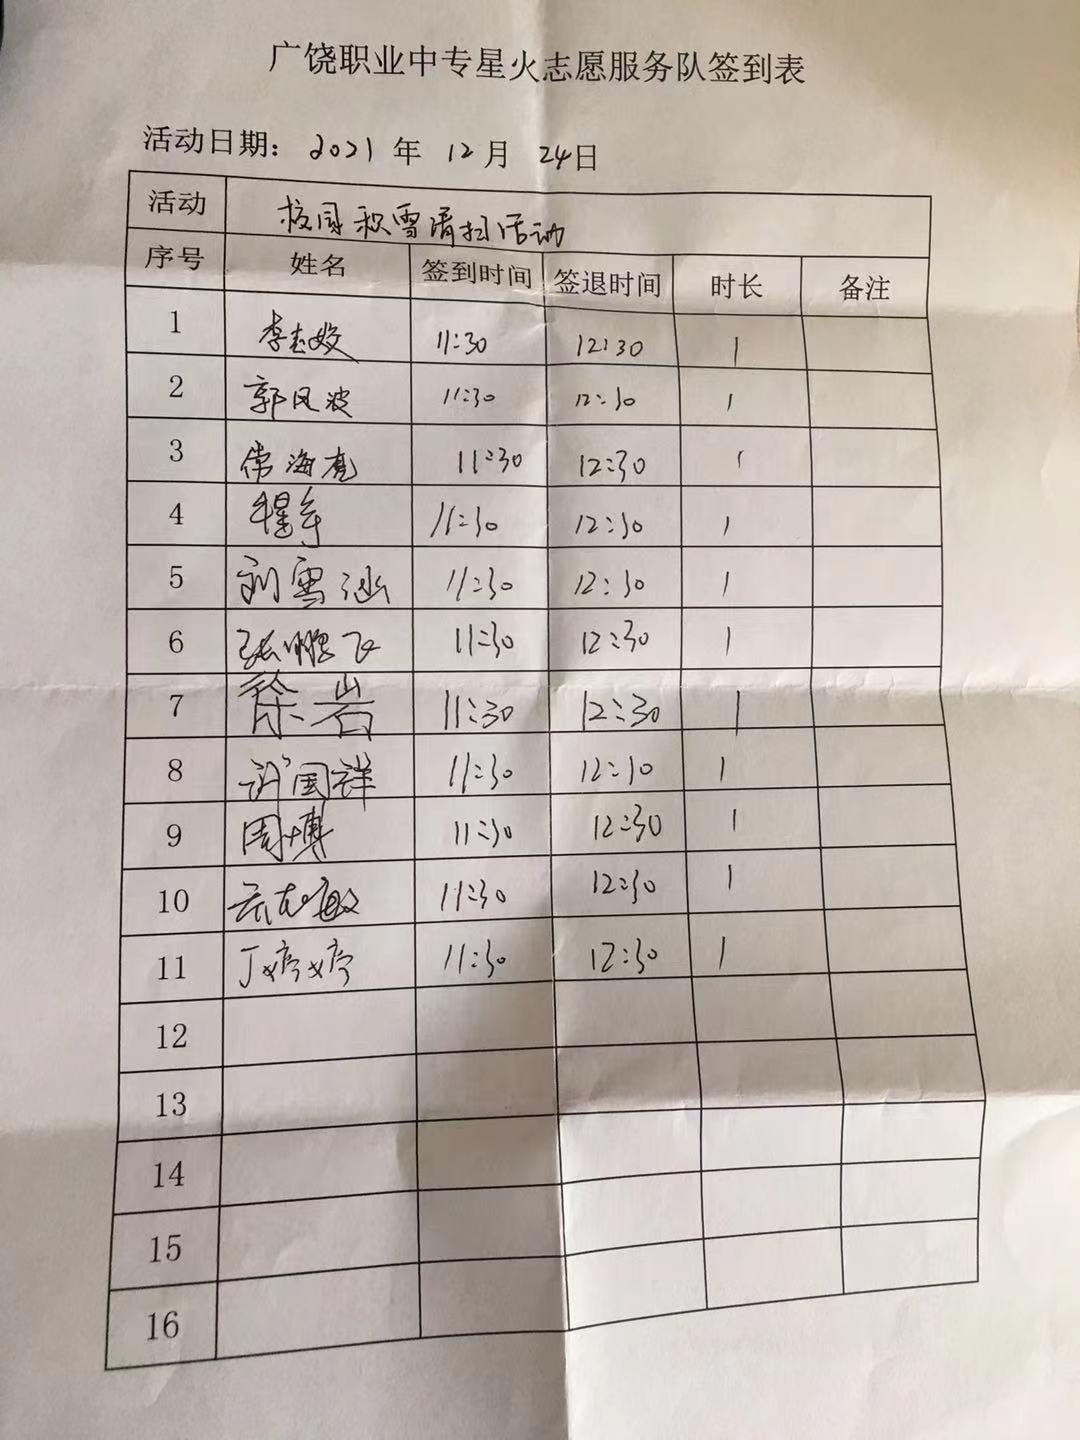 广饶职业中专星火志愿服务队签到表
活动日期：2021年12月24日
活动 校园积雪清扫活动
序号 姓名 签到时间 签退时间 时长 备注
1 李志姣 11:30 12:30 1
2 郭风波 11:30 12:30 1
3 常海亮 11:30 12:30 1
4 11:30 12:30 1
5 刘雪涵 11:30 12:30 1
6 张鹏飞 11:30 12:30 1
7 徐岩 11:30 12:30 1
8 许国祥 11:30 12:30 1
9 周博 11:30 12:30 1
10 11:30 12:30 1
11 丁婷婷 11:30 12:30 1
12
13
14
15
16